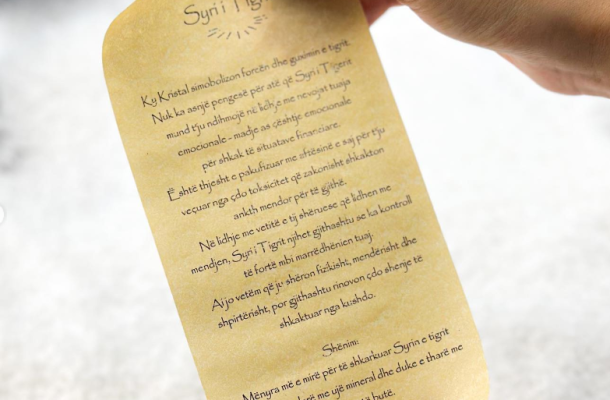 Syri i Tigrit
Ky Kristal simobolizon forcën dhe guximin e tigrit.
Nuk ka asnjë pengesë për atë që Syri i Tigerit
mund t'ju ndihmojë në lidhje me nevojat tuaja
emocionale - madje as çështje emocionale
për shkak të situatave financiare.
Është thjesht e pakufizuar me aftësinë e saj për t'ju
veçuar nga çdo toksicitet që zakonisht shkakton
ankth mendor për të gjithë.
Në lidhje me vetitë e tij shëruese që lidhen me
mendjen, Syri i Tigrit njihet gjithashtu se ka kontroll
të fortë mbi marrëdhënien tuaj.
Ai jo vetëm që ju shëron fizikisht, mendërisht dhe
shpirtërisht, por gjithashtu rinovon çdo shenjë të
shkaktuar nga kushdo.
Shënim:
Mënyra më e mirë për të shkarkuar Syrin e tigrit
me ujë mineral dhe duke e tharë me
të butë.